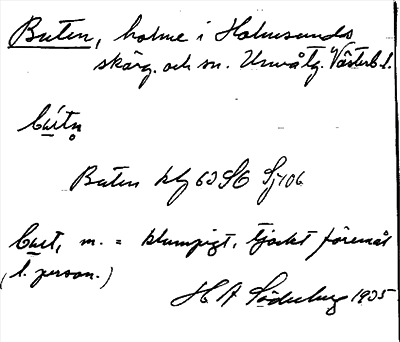 Buten, holme i Holmsunds
skärg. och sn. Umeåtg. Västerb.l.
Buten klj 63 SO Sj 106
m. = klumpigt, tjockt föremål
(l. person.)
H A Söderberg 1935